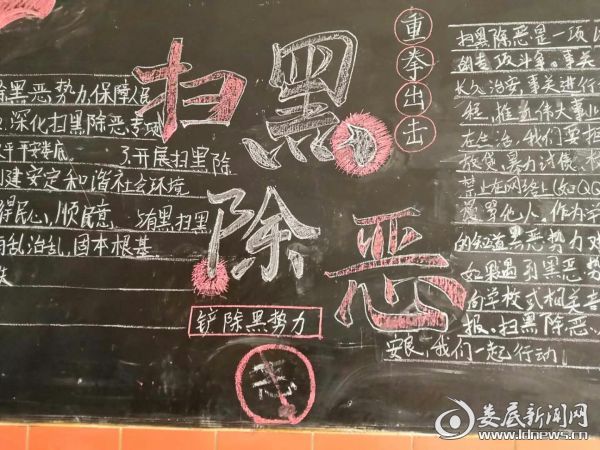 扫黑除恶
重拳出击
除黑恶势力,保障人民
深化扫黑除恶专项
平安娄底. 3.开展扫黑除
建安定和谐社会环境
得民心,顺民意. 5.有黑扫黑
有乱治乱,固本根基.
铲除黑势力
恶
扫黑除恶是一项
的专项斗争。事关
长久治安,事关进行
程,推进伟大事业
在生活,我们要
暴力讨债、
禁止在网络上(如QQ
辱骂他人。作为学
的知道与恶势力
如果遇到黑恶势
向学校或相关
报。扫黑除恶、
安良,我们一起行动!
娄底新闻网
www.ldnews.cn